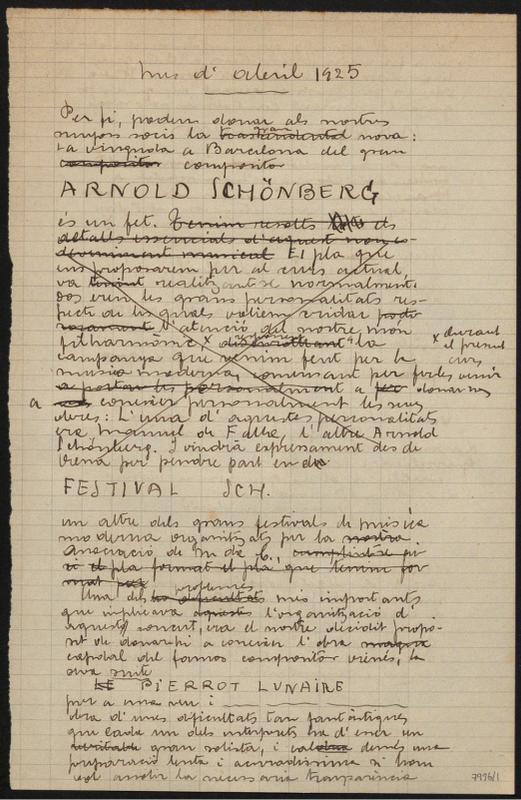 mes d'abril 1925
Per fi, podem donar als nostres
socis la nova:
La vinguda a Barcelona del gran
compositor compositor
ARNOLD SCHÖNBERG
és un fet. Tenim resolts els
detalls essencials d'aquest
musical El pla que
ens proposarem per al curs actual,
va realitzant-se normalment.
Dos eren les grans personalitats res-
pecte de les quals volíem cridar
l'atenció del nostre món
filharmònic x la x durant
campanya que venim fent per la el present
música moderna, començant per fer-les venir curs
a portar-les personalment a fer donar-nos
a conèixer personalment les seves
obres: L'una d'aquestes personalitats
era Manuel de Falla, l'altre Arnold
Schönberg. I vindrà expressament des de
Viena per pendre part en
FESTIVAL SCH.
un altre dels grans festivals de música
moderna organitzats per la nostra
Associació de M. da C.
el pla format el pla que teníem for
mat
problemes
Una dels dificultats més importants
que implicava aquest l'organització d'
aquest concert, era el nostre decidit propò-
sit de donar-hi a conèixer l'obra magna
capdal del famós compositor vienès, la
seva suite
LE PIERROT LUNAIRE
per a una veu i
obra d'unes dificultats tan fantàstiques
que cada un dels interprets ha d'ésser un
veritable gran solista, i demés una
preparació lenta i acuradíssima si hom
vol assolir la necessària transparència
7996/1